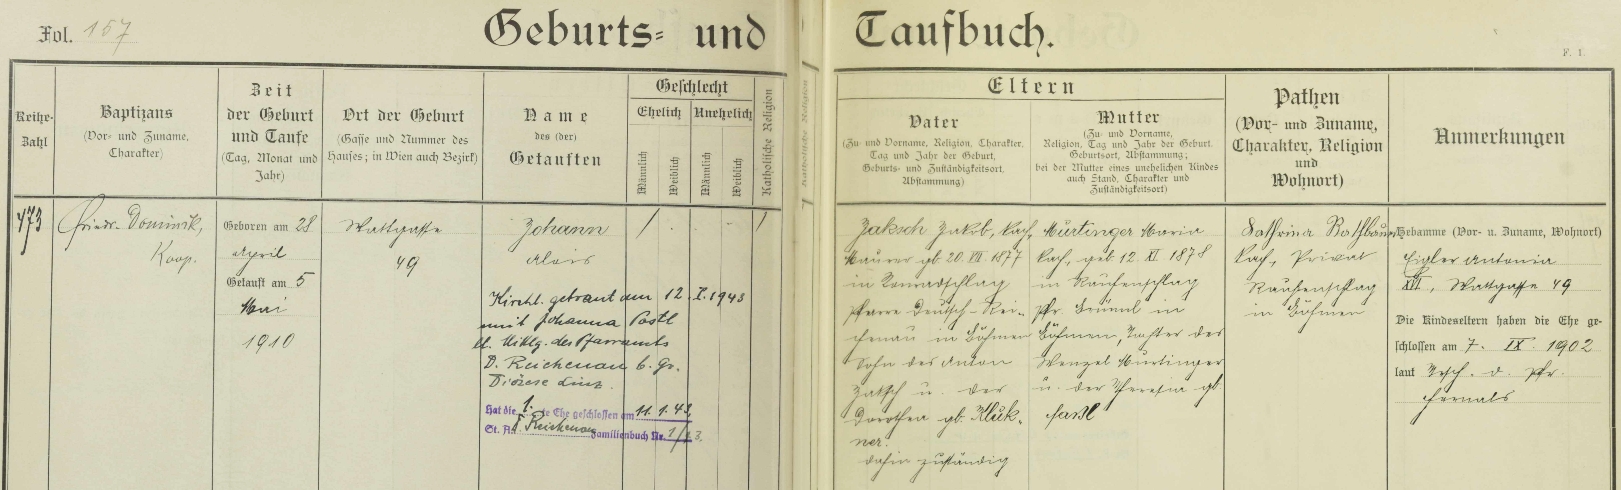 Fol. 157
Geburts- und Taufbuch.
F. 1.
Reihe-
Zahl
Baptizans
(Vor- und Zuname,
Charakter)
Zeit
der Geburt
und Taufe
(Tag, Monat und
Jahr)
Ort der Geburt
(Gasse und Nummer des
Hauses; in Wien auch Bezirk)
Name
des (der)
Getauften
Geschlecht
Ehelich
Unehelich
Männlich
Weiblich
Männlich
Weiblich
Katholische Religion
Katholische Religion
Eltern
Vater
(Zu- und Vorname, Religion, Charakter,
Tag und Jahr der Geburt,
Geburts- und Zuständigkeitsort,
Abstammung)
Mutter
(Zu- und Vorname,
Religion, Tag und Jahr der Geburt,
Geburtsort, Abstammung;
bei der Mutter eines unehelichen Kindes
auch Stand, Charakter und
Zuständigkeitsort)
Pathen
(Vor- und Zuname,
Charakter, Religion
und
Wohnort)
Anmerkungen
473
Friedr. Dominik,
Koop.
Geboren am 28
April
Getauft am 5
Mai
1910
Wattgasse
49
Johann
Alois
Kirchl. getraut am 12. I. 1943
mit Johanna Postl
lt. Mittlg. des Pfarramts
D. Reichenau b. Gr.
Diözese Linz.
Hat die 1. te Ehe geschlossen am 11.1.43,
St. A. D. Reichenau Familienbuch Nr. 1/43.
Jaksch Jakob, kath,
Maurer gb. 20. VII. 1877
in Konradschlag
Pfarre Deutsch-Rei-
chenau in Böhmen
Sohn des Anton
Jaksch u. der
Dorothea gb. Kluk-
ner.
dahin zuständig
Murtinger Maria
kath, geb. 12. XI. 1878
in Rauhenschlag
Pfr. Brünnl in
Böhmen, Tochter des
Wenzel Murtinger
u. der Theresia gb.
Kathrina Rathbaum
kath, Privat
Rauhenschlag
in Böhmen
Hebamme (Vor- u. Zuname, Wohnort)
Eigler Antonia
XVI., Wattgasse 49
Die Kindeseltern haben die Ehe ge-
schlossen am 7. IX. 1902
laut Trsch. d. Pfr.
Hernals